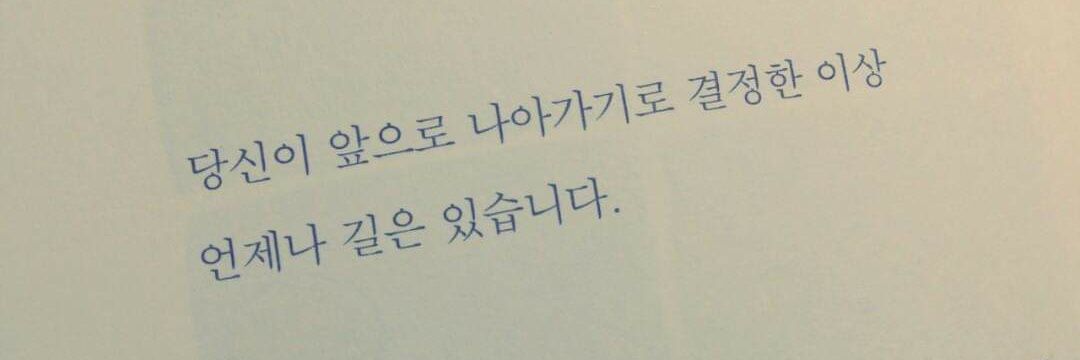 당신이 앞으로 나아가기로 결정한 이상
언제나 길은 있습니다.